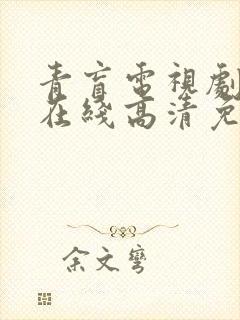 青盲電視劇
在綫高清免
余文彎